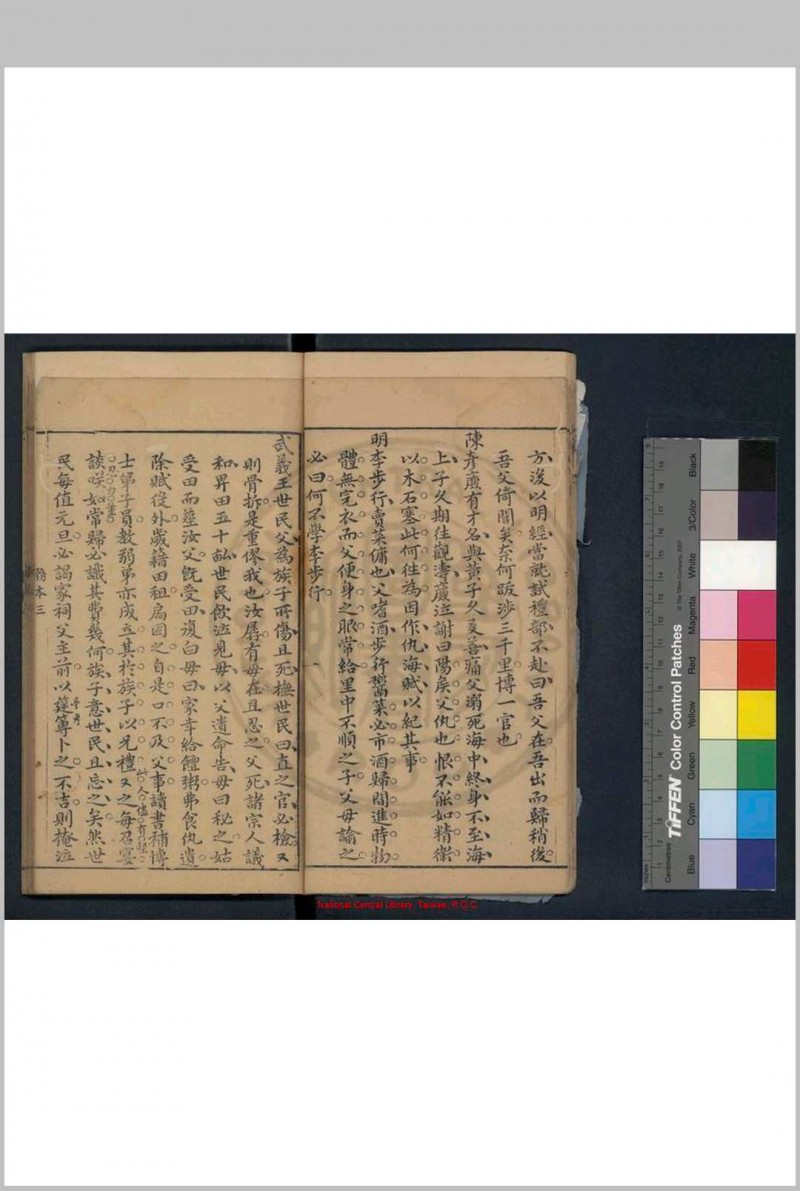 方浚以明經當就試禮部不赴曰吾父在吾出而歸稍後
吾父倚閭矣奈何跋涉三千里博一官也
陳彥廣有才名與黃子久交善痛父溺死海中終身不至海
上子久期往觀濤廣泣謝曰陽侯父仇也恨不能如精衛
以木石塞此何往為因作仇海賦以紀其事
明李步行賣菜傭也父嗜酒步行鬻菜必市酒歸間進時物
體無完衣而父便身之服常給里中不順之子父母諭之
必曰何不學李步行
武義王世民父為族子所傷且死撫世民曰直之官必檢又
則骨拆是重僇我也汝孱有母在且忍之父死諸宗人議
和昇田五十畝世民飲泣見母以父遺命告母曰秘之姑
受田而塟汝父既受田復白母曰家幸給饘粥弗食仇遺
除賦役外歲籍田租扃固之自是口不及父事讀書補博
士第子員教弱弟亦成立其於族子以兄禮又之每召宴
談咲如常歸必識其費幾何族子意世民且忘之矣然世
民每值元旦必謁家祠父主前以籩篿卜之不吉則掩泣
務本三
National Central Library, Taiwan, R.O.C
TIFFEN Color Control Patches
© The Tiffen Company, 2007
Centimetres
Blue
Cyan
Green
Yellow
Red
Magenta
White
3/Color
Black